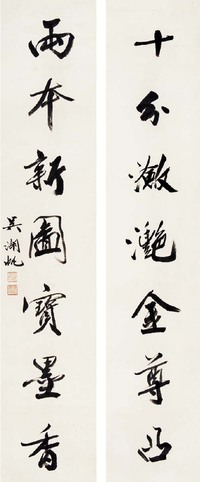 十分潋滟金尊凸
兩本新圖寶墨香
吳湖帆